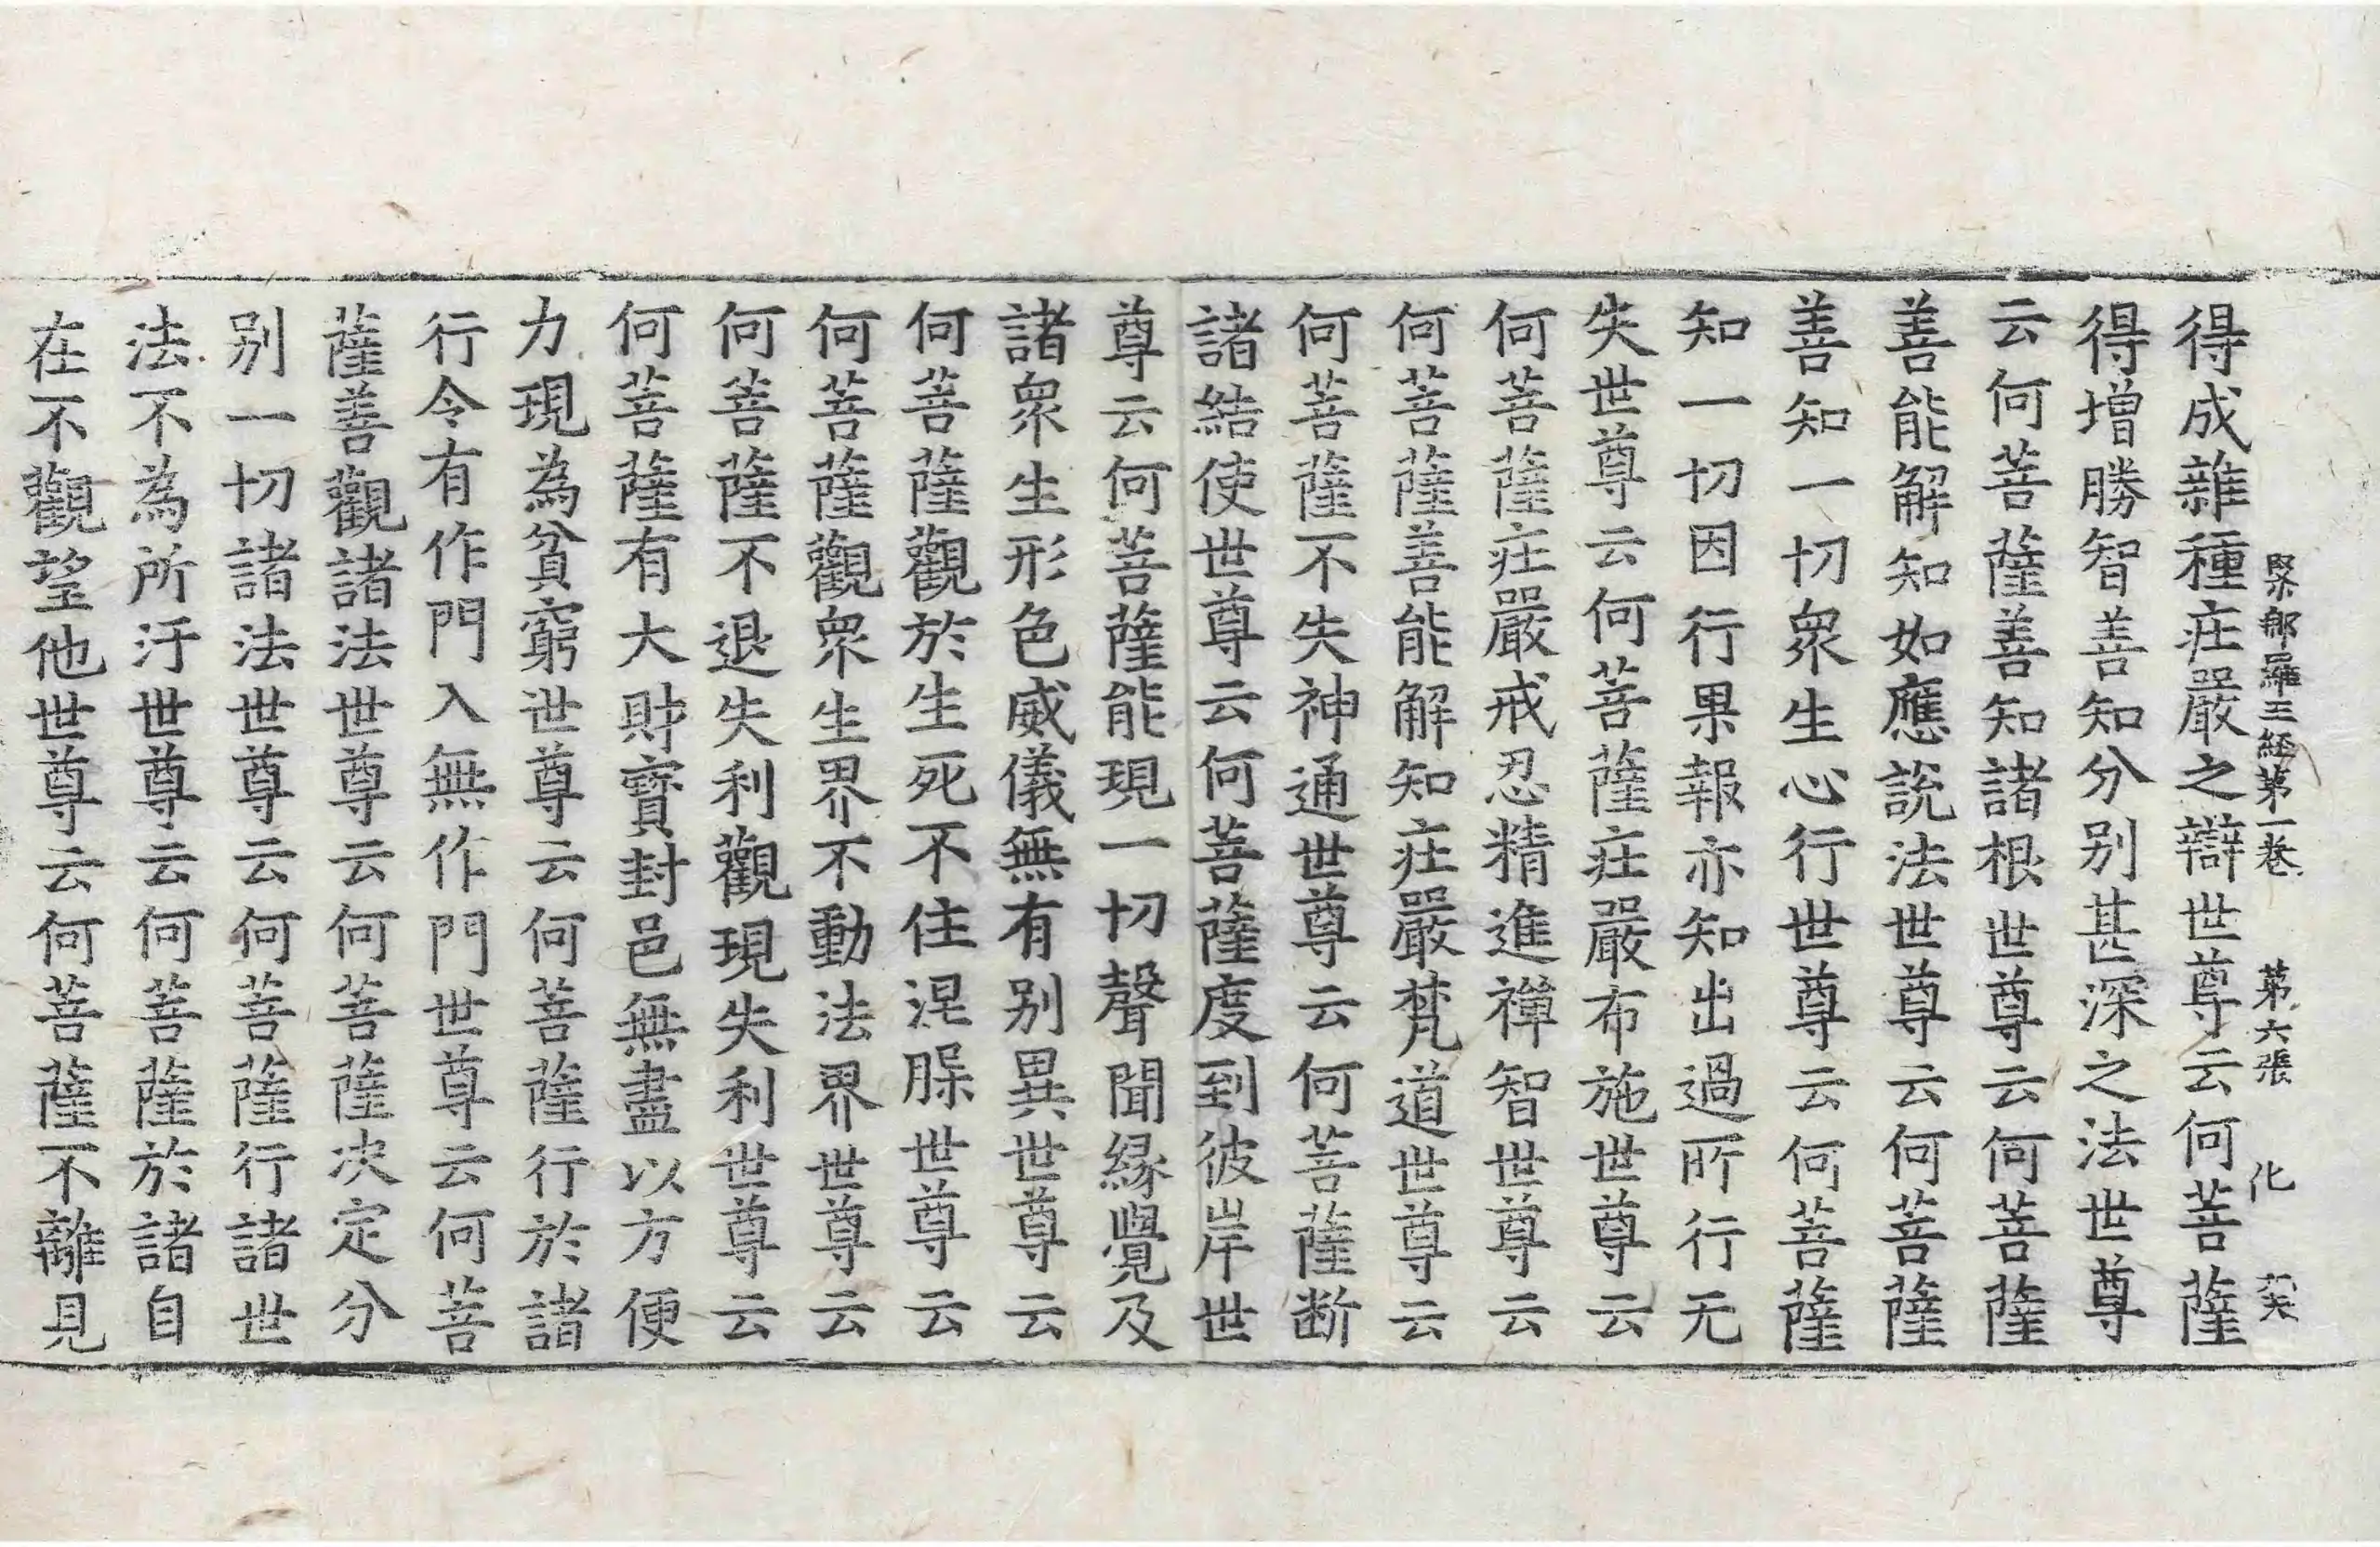 緊那羅王経第一巻 第六張 化
得成雜種庄嚴之辯世尊云何菩薩
得增勝智善知分別甚深之法世尊
云何菩薩善知諸根世尊云何菩薩
善能解知如應說法世尊云何菩薩
善知一切衆生心行世尊云何菩薩
知一切因行果報亦知出過所行无
失世尊云何菩薩庄嚴布施世尊云
何菩薩庄嚴戒忍精進禪智世尊云
何菩薩善能解知庄嚴梵道世尊云
何菩薩不失神通世尊云何菩薩断
諸結使世尊云何菩薩度到彼岸世
尊云何菩薩能現一切聲聞緣覺及
諸衆生形色威儀無有別異世尊云
何菩薩觀於生死不住涅槃世尊云
何菩薩觀衆生界不動法界世尊云
何菩薩不退失利觀現失利世尊云
何菩薩有大財寶封邑無盡以方便
力現為貧窮世尊云何菩薩行於諸
行令有作門入無作門世尊云何菩
薩善觀諸法世尊云何菩薩决定分
別一切諸法世尊云何菩薩行諸世
法不為所汙世尊云何菩薩於諸自
在不觀望他世尊云何菩薩不離見